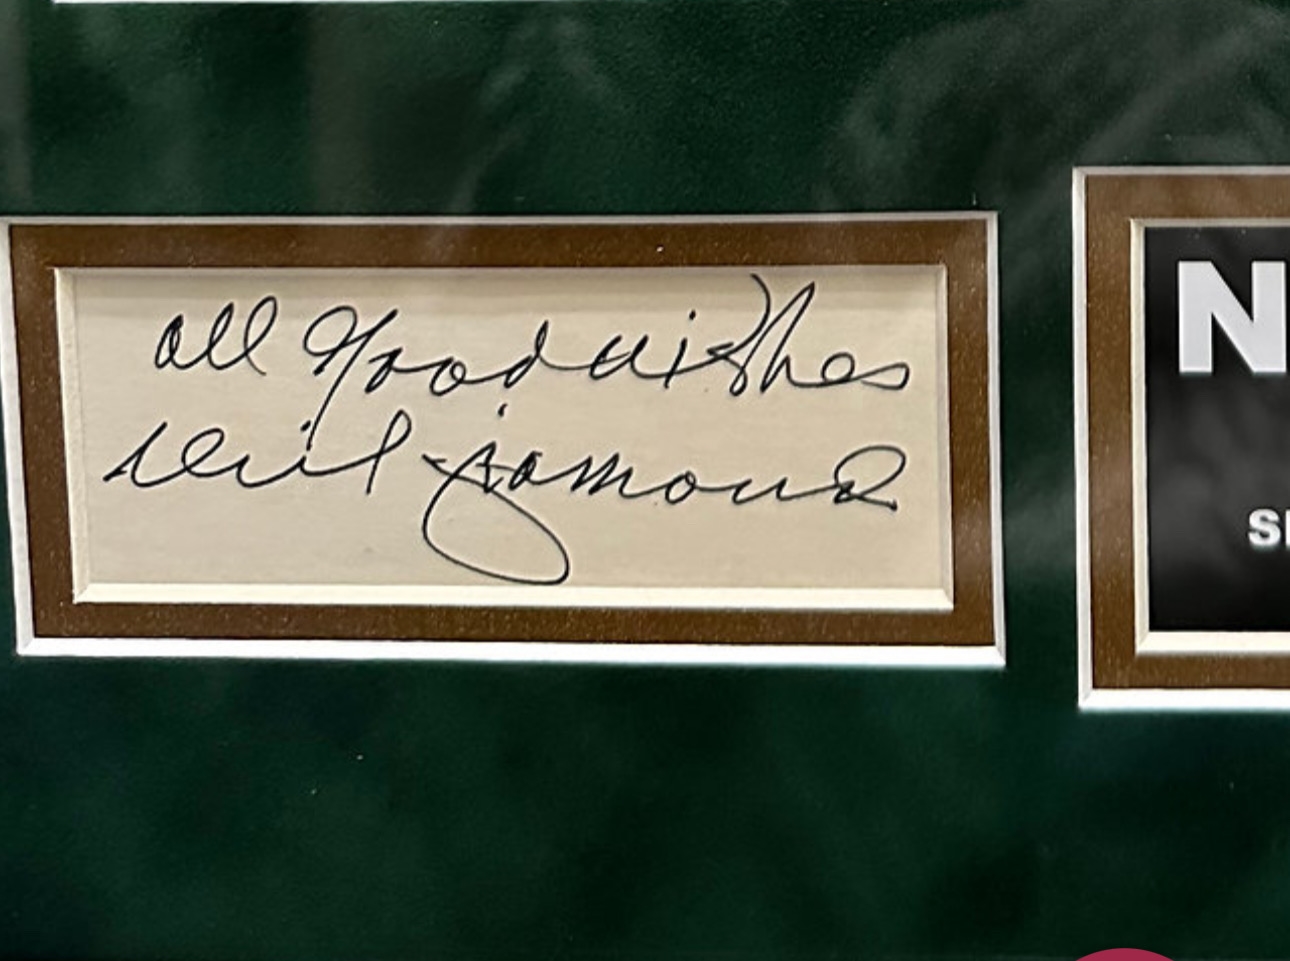 All Good wishes
Neil Diamond
N
S